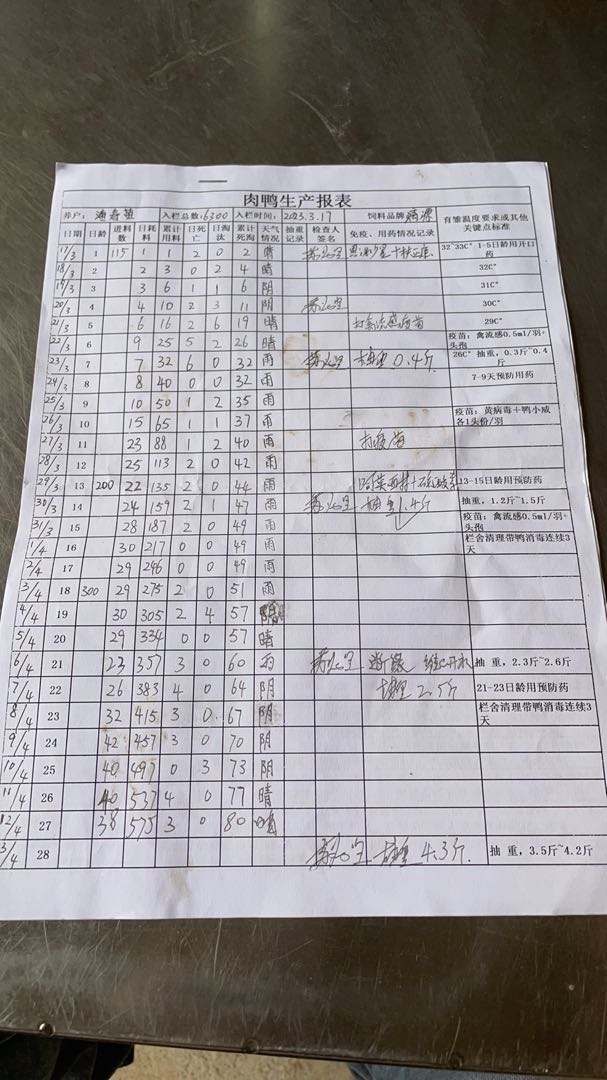 肉鸭生产报表
养户: 入栏总数: 6300 入栏时间: 2023.3.17 饲料品牌 育雏温度要求或其他关键点标准
日期 日龄 进料数 日耗料 累计用料 日死亡 日淘汰 累计死淘 天气情况 抽重记录 检查人签名 免疫、用药情况记录
17/3 1 115 1 1 2 0 2 晴 32~33C° 1-5日龄用开口药
18/3 2 2 3 0 2 4 晴 32C°
19/3 3 3 6 1 1 6 阴 31C°
20/3 4 4 10 2 3 11 阴 30C°
21/3 5 6 16 2 6 19 晴 打禽流感疫苗 29C°
22/3 6 9 25 5 2 26 晴 疫苗: 禽流感0.5ml/羽+头孢
23/3 7 7 32 6 0 32 雨 抽重 0.4斤 26C° 抽重, 0.3斤~0.4斤
24/3 8 8 40 0 0 32 雨 7-9天预防用药
25/3 9 10 50 1 2 35 雨
26/3 10 15 65 1 1 37 雨 疫苗: 黄病毒+鸭小威各1头份/羽
27/3 11 23 88 1 2 40 雨 打疫苗
28/3 12 25 113 2 0 42 雨
29/3 13 200 22 135 2 0 44 雨 13-15日龄用预防药
30/3 14 24 159 2 1 47 雨 抽重1.4斤 抽重, 1.2斤~1.5斤
31/3 15 28 187 2 0 49 雨 疫苗: 禽流感0.5ml/羽+头孢
1/4 16 30 217 0 0 49 雨 栏舍清理带鸭消毒连续3天
2/4 17 29 246 0 0 49 雨
3/4 18 300 29 275 2 0 51 雨
4/4 19 30 305 2 4 57 阴
5/4 20 29 334 0 0 57 晴
6/4 21 23 357 3 0 60 雨 抽 重, 2.3斤~2.6斤
7/4 22 26 383 4 0 64 阴 抽重 2.5斤 21-23日龄用预防药
8/4 23 32 415 3 0 67 阴 栏舍清理带鸭消毒连续3天
9/4 24 42 457 3 0 70 阴
10/4 25 40 497 0 3 73 阴
11/4 26 40 537 4 0 77 晴
12/4 27 38 575 3 0 80 晴
3/4 28 抽重 4.3斤 抽 重, 3.5斤~4.2斤